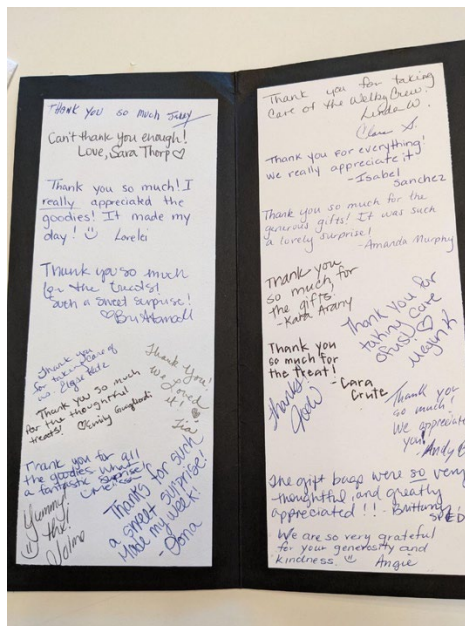 Thank you so much Jilly
Can't thank you enough!
Love, Sara Thorp ♡
Thank you so much! I
really appreciated the
goodies! It made my
day! ☺ Lorelei
Thank you so much
for the treats!
Such a sweet surprise!
♡
Thank you
for taking care of
us.
Thank you so much
for the thoughtful
treats!
Emily
Thank you!
We loved
it!
♡
Tia
Thank you for all
the goodies what
a fantastic surprise!
Yummy
thx!
☺
Thanks for such
a sweet surprise!
Made my week!
- Oona
Thank you for taking
care of the Welby Crew.
Linda W.
Clare S.
Thank you for everything!
we really appreciate it!
- Isabel
Sanchez
Thank you so much for the
generous gifts! It was such
a lovely surprise!
- Amanda Murphy
Thank you
so much for
the gifts!
- Kara Arany
Thank you for
taking care
of us! ♡
Megan K
Thank you
so much for
the treat!
- Cara
Crute
Thanks!
Thank you
so much!
We appreciate
you!
- Andy B
The gift bags were so very
thoughtful and greatly
appreciated!! - Brittany
SPED
We are so very grateful
for your generosity and
kindness. ☺ Angie